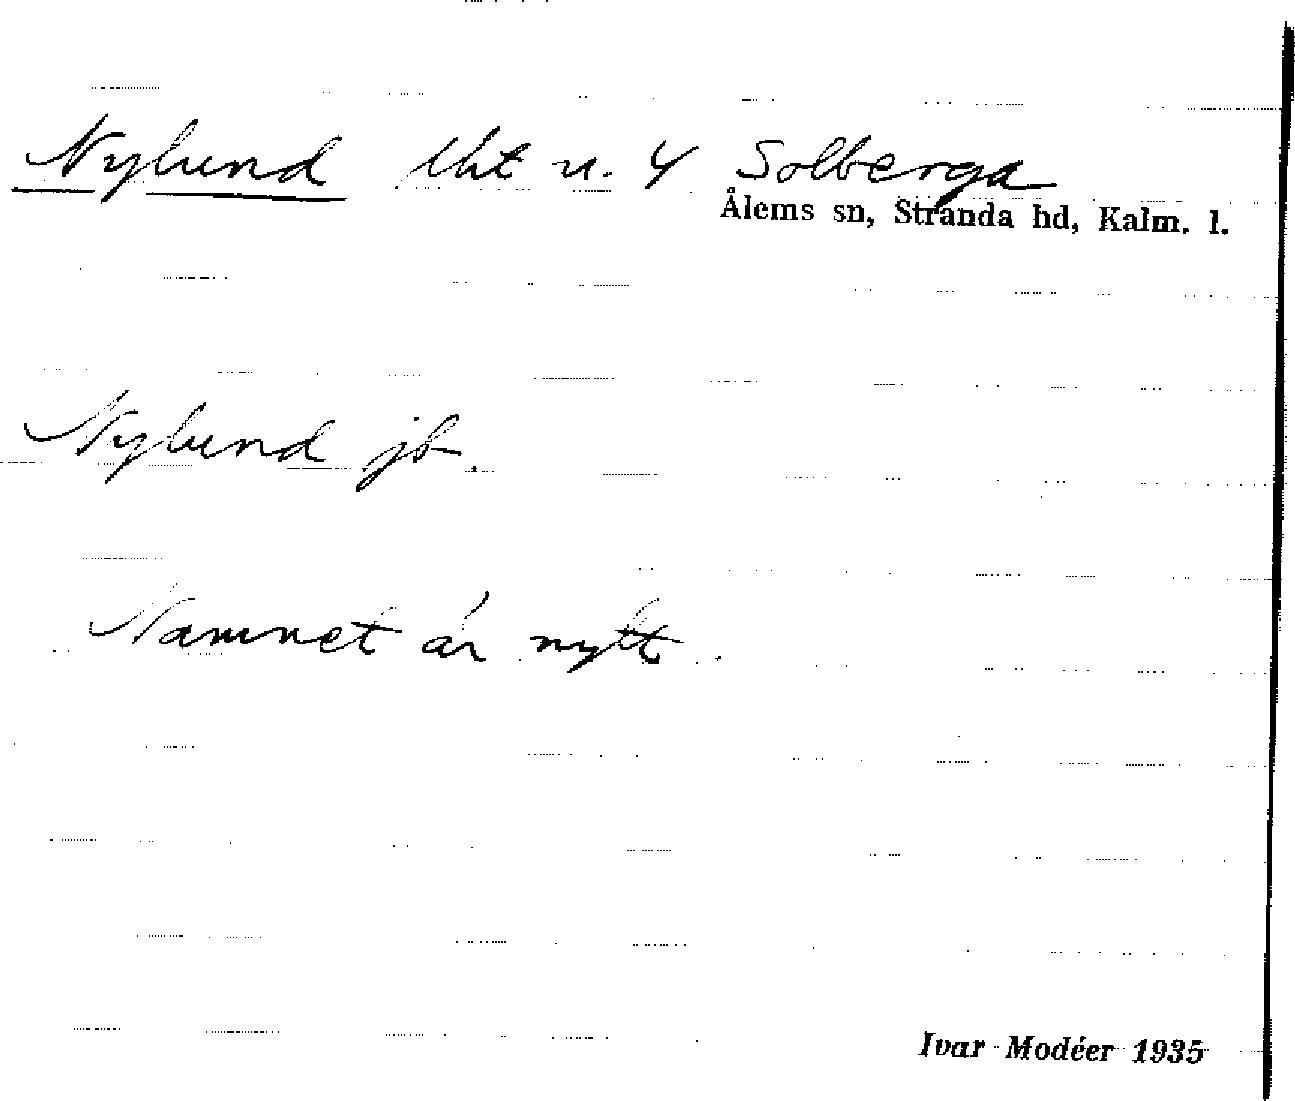 Nylund lht u. 4 Solberga
Ålems sn, Stranda hd, Kalm. l.
Nylund jb.
Namnet är nytt.
Ivar Modéer 1935